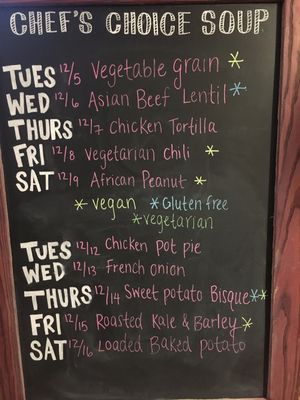 CHEF'S CHOICE SOUP
TUES 12/5 Vegetable grain *
WED 12/6 Asian Beef Lentil *
THURS 12/7 Chicken Tortilla
FRI 12/8 Vegetarian Chili *
SAT 12/9 African Peanut *
* vegan * Gluten free
* vegetarian
TUES 12/12 Chicken Pot pie
WED 12/13 French onion
THURS 12/14 Sweet potato Bisque **
FRI 12/15 Roasted Kale & Barley *
SAT 12/16 Loaded Baked potato